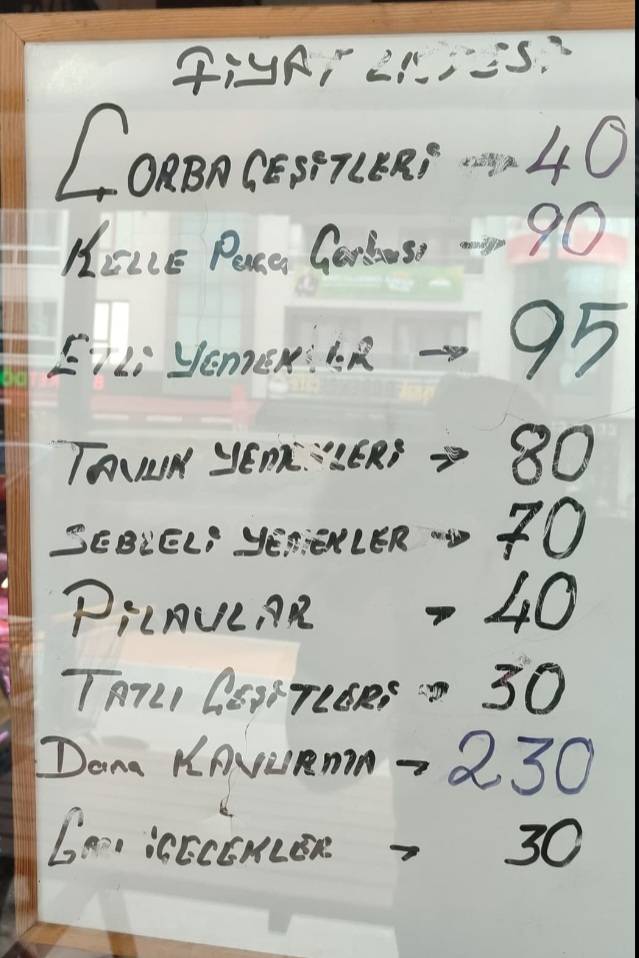 FİYAT LİSTESİ
ÇORBA ÇEŞİTLERİ → 40
KELLE Paça Çorbası → 90
ETLİ YEMEKLER → 95
TAVUK YEMEKLERİ → 80
SEBZELİ YEMEKLER → 70
PİLAVLAR → 40
TATLI ÇEŞİTLERİ → 30
Dana KAVURMA → 230
İÇECEKLER → 30